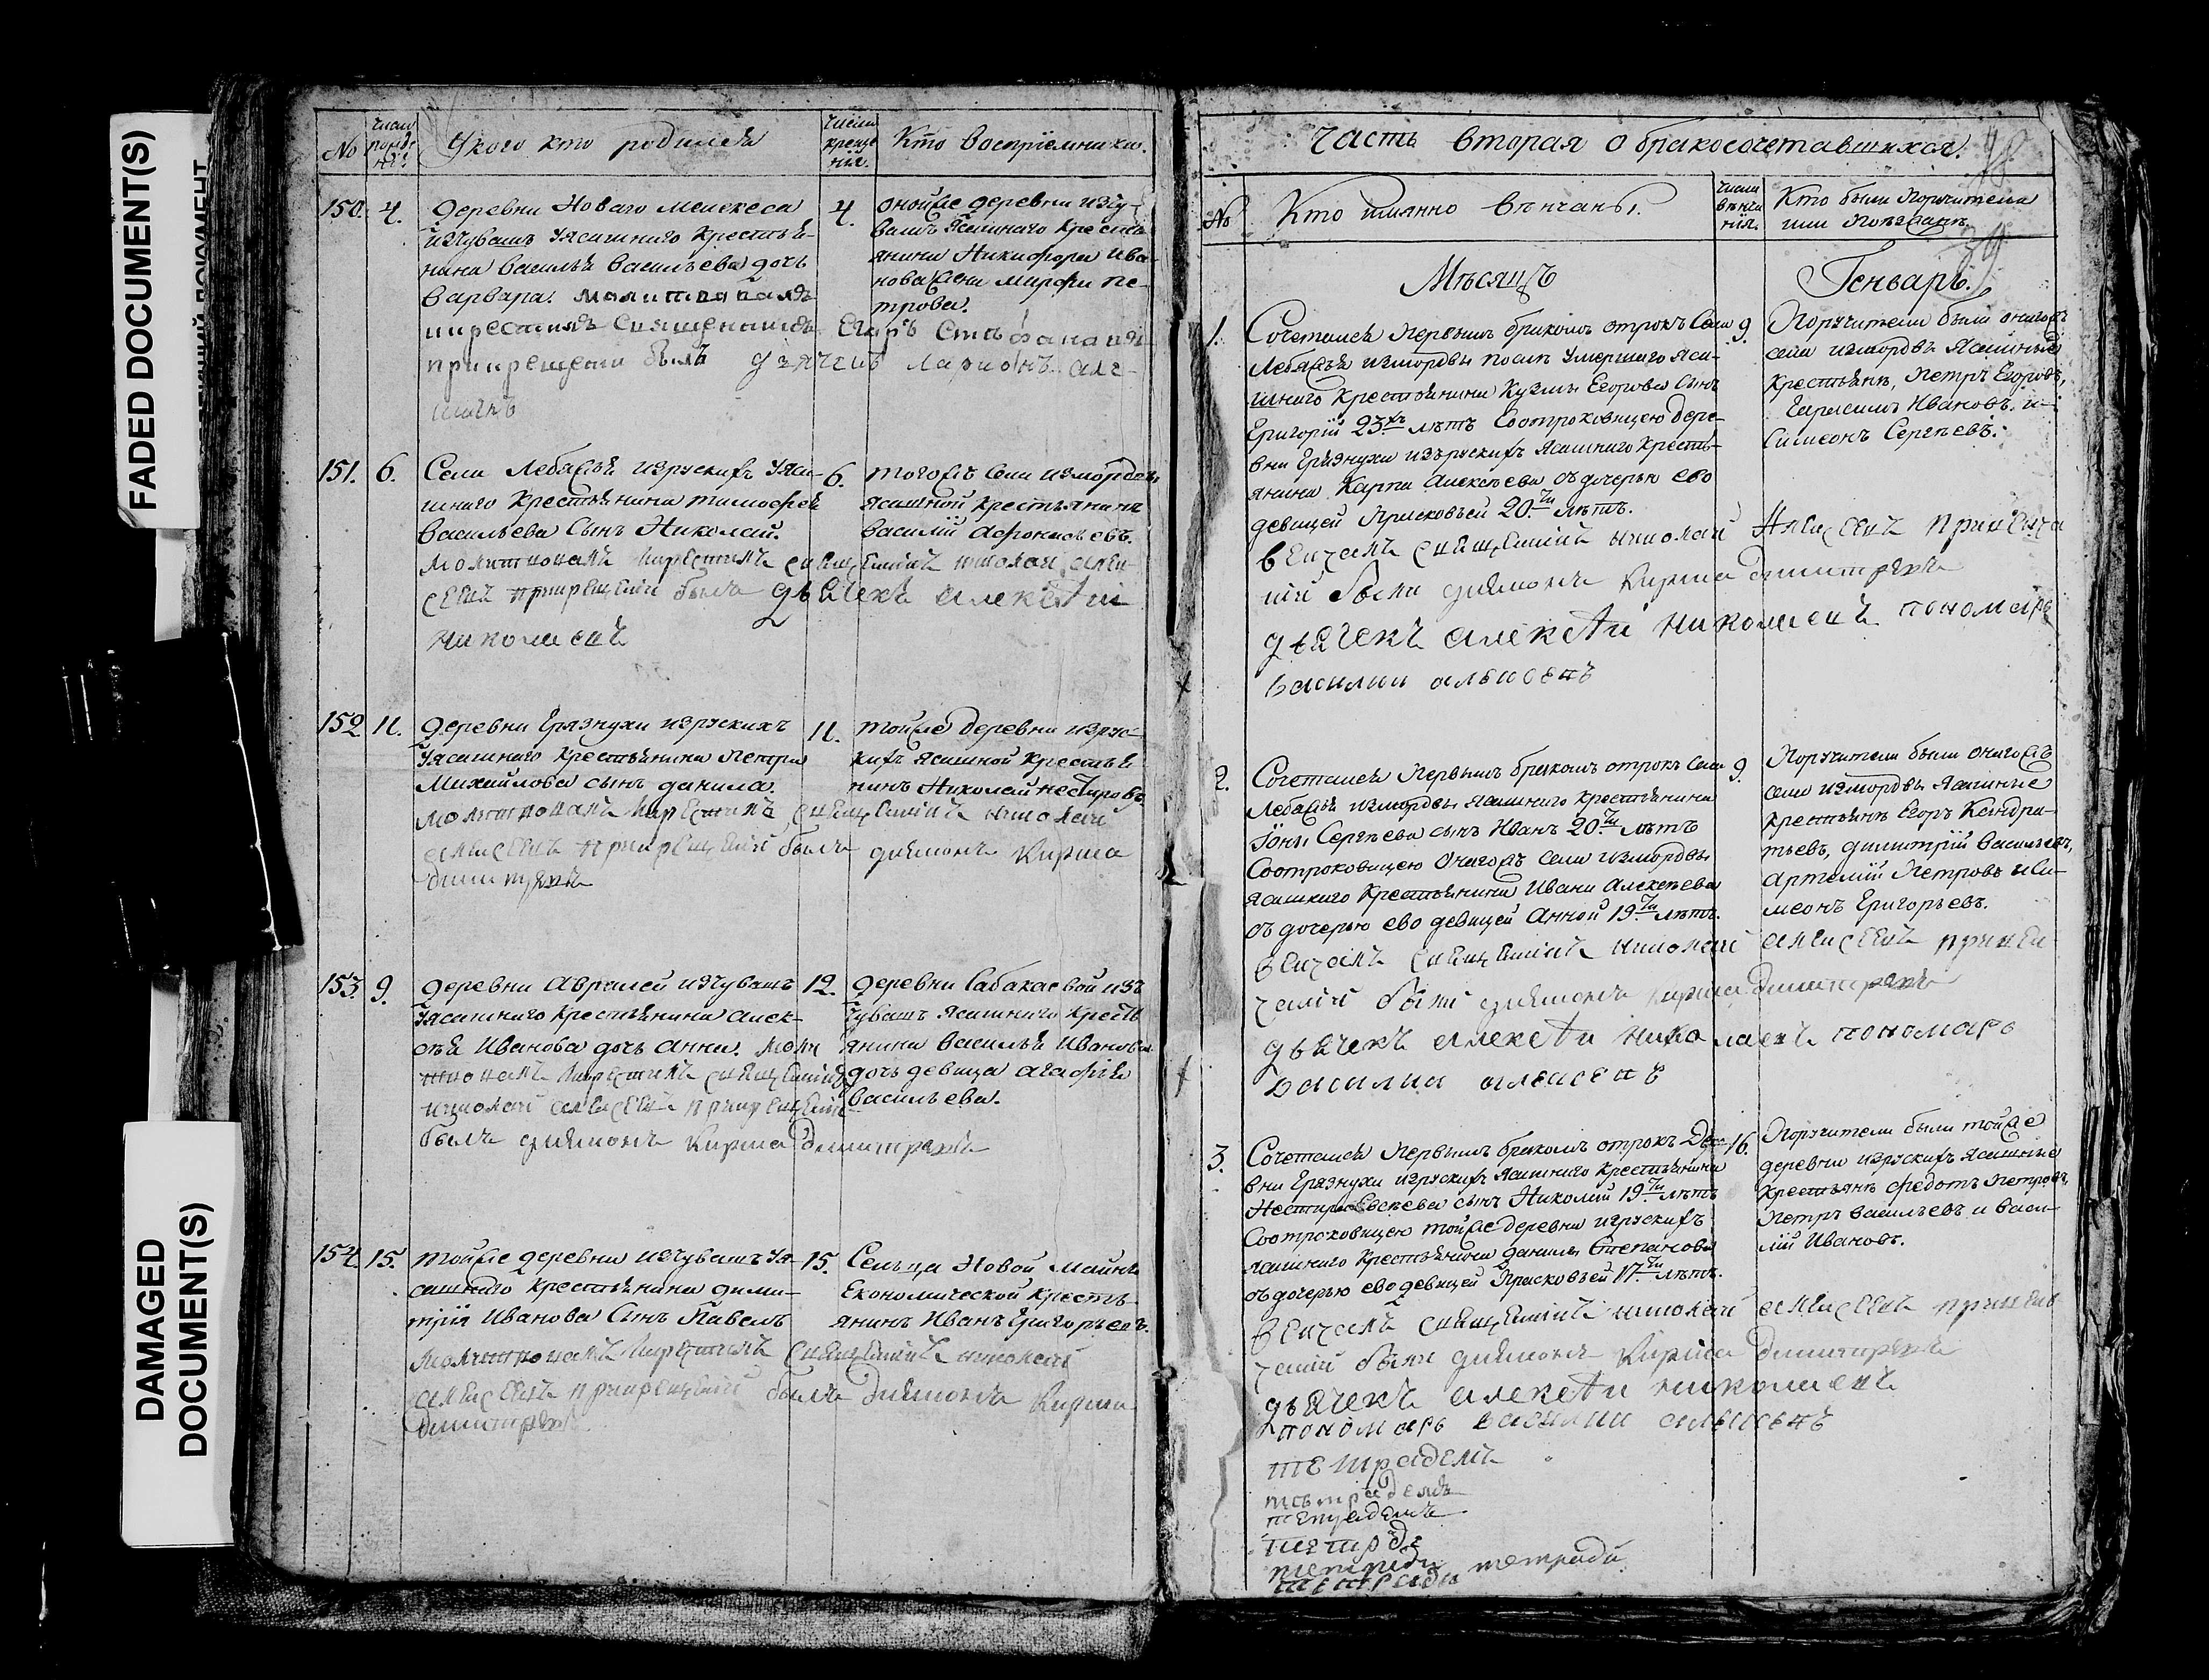 FADED DOCUMENT(S)
DAMAGED
DOCUMENT(S)
№
число рожде нія.
У кого кто родился
число креще нія.
Кто воспріемники.
150. 4.
деревни Новаго Мелекеса
изчувашъ Уясашнаго крестья-
нина Василья Васильева дочь
Варвара. молитвовалъ
икрестилъ священникъ Егоръ Стефанавъ
прикрещени былъ дьячекъ Ларионъ
4.
оной же деревни изчу-
вашъ Ясашнаго кресть
янина Никифора Ива-
нова жена Марфа Пе-
трова.
151. 6.
Села Лебяжья изрускихъ Уяса-
шнаго крестьянина тимофея
Васильева сынъ Николай.
молитвовалъ икрестилъ священникъ николай алек
сеевъ прикрещеніи былъ дьячекъ алексѣи
николаевъ
6.
того жъ села измордвы
Ясашной крестьянинъ
Василій Афонасьевъ.
152. 11.
деревни Грязнухи изрускихъ
Уясашнаго крестьянина Петра
Михайлова сынъ данила.
молитвовалъ икрестилъ священникъ николай
алексеевъ прикрещеніи былъ диаконъ Кирила
димитревъ
11.
той же деревни изрус-
кихъ ясашной крестья
нинъ Николай Нестеровъ.
153. 9.
деревни Аврилей изчувашъ
Уясашнаго крестьянина алек-
сѣя Иванова дочь Анна. моли
твовалъ икрестилъ священникъ
николай алексеевъ прикрещеніи
былъ диаконъ Кирила димитревъ
12.
деревни Сабакаевой изъ
чувашъ ясашнаго кресть
янина Василья Иванова
дочь девица агафія
васильева.
154. 15.
той же деревни изчувашъ Уя-
сашнаго крестьянина дими-
трія Иванова Сынъ Павелъ
молитвовалъ икрестилъ священникъ николай
алексеевъ прикрещеніи былъ диаконъ Кирила
димитревъ
15.
Сельца Новой Майны
Економической кресть
янинъ Иванъ Григорьевъ.
часть вторая о бракосочетавшихся.
№
Кто имянно венчаны.
числа венча нія.
Кто были Поручители
или Поезжане.
Мѣсяцъ
Генварь.
1.
Сочетался первымъ бракомъ отрокъ Села
Лебяжья измордвы послѣ умершаго Яса-
шнаго крестьянина Кузмы Егорова Сынъ
Григорій 23хъ лѣтъ Соотроковицею дере-
вни Грязнухи изърускихъ Ясашнаго кресть-
янина Карпа Алексѣева съ дочерью ево
девицей Прасковьей 20ти лѣтъ.
венчалъ священникъ николай Алексеевъ привенча
ніи были диаконъ Кирила димитревъ
дьячекъ алексѣи николаевъ пономарь
василии
9.
Поручители были онагожъ
села измордвы Ясашныя
крестьяне, Петръ Егоровъ,
Герасимъ Ивановъ, и
Симеонъ Сергѣевъ.
2.
Сочетался первымъ бракомъ отрокъ Села
Лебяжья измордвы ясашнаго крестьянина
Іоны Сергѣева сынъ Иванъ 20ти лѣтъ
Соотроковицею онагожъ села измордвы
ясашнаго крестьянина Ивана Алексѣева
съ дочерью ево девицей Анной 19ти лѣтъ.
венчалъ священникъ николай алексеевъ привен
чаніи были диаконъ кирила димитревъ
дьячекъ алексѣи николаевъ пономарь
василии
9.
Поручители были онагожъ
села измордвы Ясашные
крестьяне Егоръ Кандра-
тьевъ, димитрій Васильевъ,
артемій Петровъ и Си-
меонъ Григорьевъ.
3.
Сочетался первымъ бракомъ отрокъ Дере
вни Грязнухи изрускихъ Ясашнаго крестьянина
Нестера Евсѣева сынъ Николай 19ти лѣтъ
Соотроковицею той же деревни изрускихъ
ясашнаго крестьянина данилы Степанова
съ дочерью ево девицей Прасковьей 17ти лѣтъ.
венчалъ священникъ николай алексеевъ привен
чаніи были диаконъ Кирила димитревъ
дьячекъ алексѣи николаевъ
пономарь василии
16.
Поручители были той же
деревни изрускихъ ясашные
крестьяне Федотъ Петровъ,
Петръ Васильевъ и Васи-
лій Ивановъ.
тетради тетради